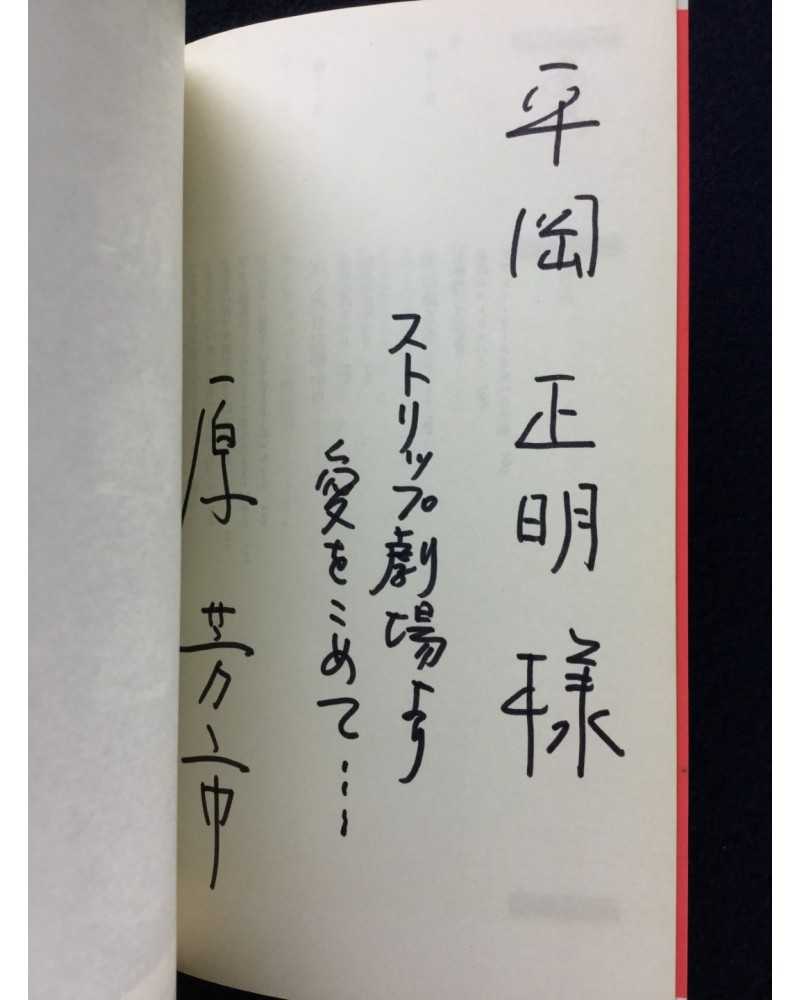 平岡 正明 様
ストリップ劇場より
愛をこめて…
原 芳市